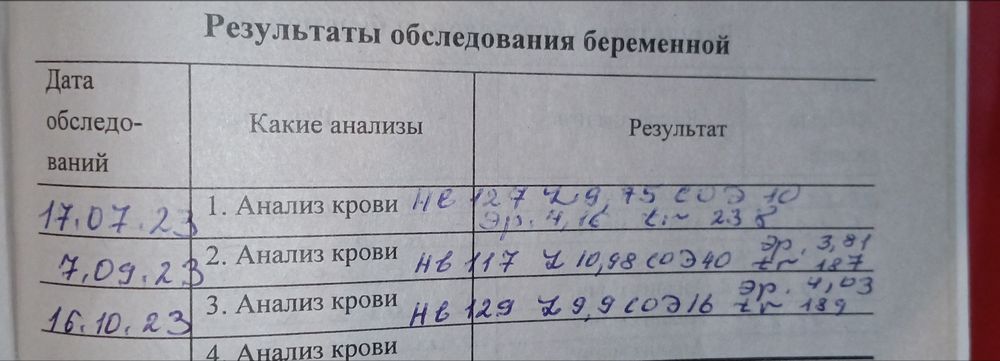 Результаты обследования беременной
Дата обследо-ваний
Какие анализы
Результат
17.07.23
1. Анализ крови Нв 127 L 9,75 СОЭ 10
Эр. 4,16 tr 238
7.09.23
2. Анализ крови Нв 117 L 10,98 СОЭ 40 Эр. 3,81
tr 187
16.10.23
3. Анализ крови Нв 129 L 9,9 СОЭ 16 Эр. 4,03
tr 189
4. Анализ крови